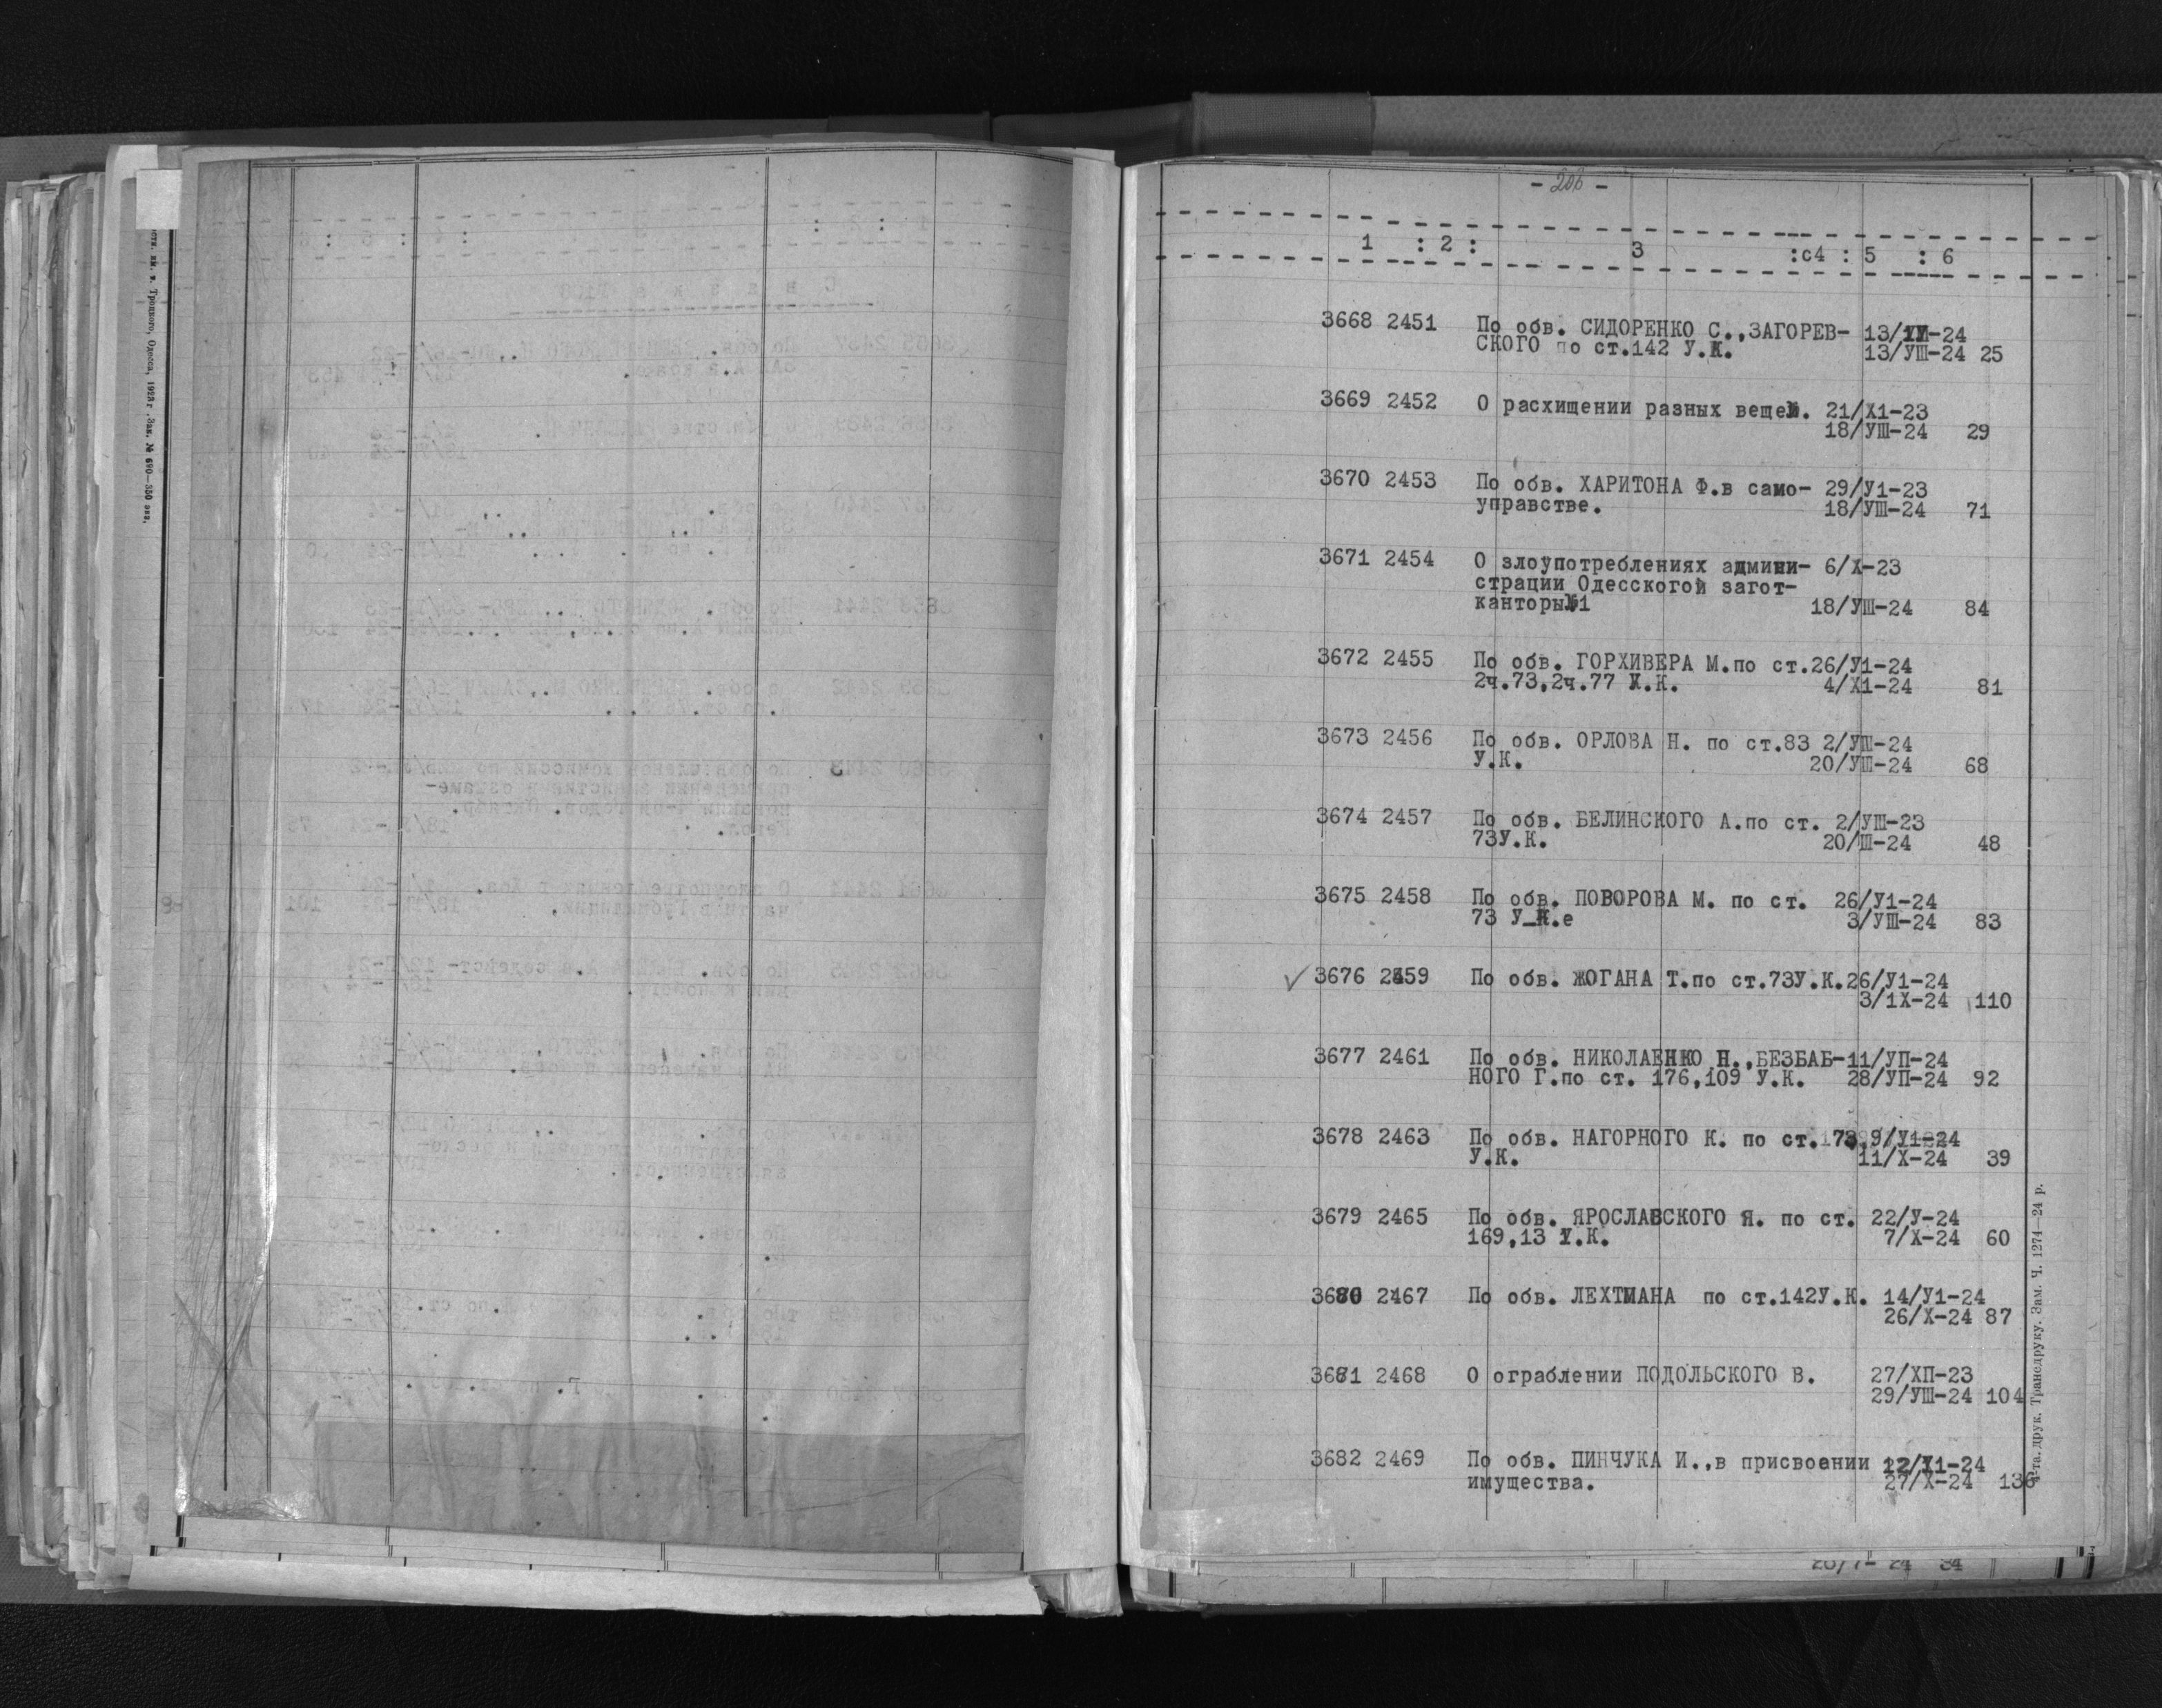 - 206 -
1 : 2 : 3 :с4 : 5 : 6
3668 2451 По обв. СИДОРЕНКО С.,ЗАГОРЕВ- 13/УП-24
СКОГО по ст.142 У.К. 13/УШ-24 25
3669 2452 О расхищении разных вещей. 21/Х1-23
18/УШ-24 29
3670 2453 По обв. ХАРИТОНА Ф.в само- 29/У1-23
управстве. 18/УШ-24 71
3671 2454 О злоупотреблениях админи- 6/Х-23
страции Одесскогой загот-
канторы№1 18/УШ-24 84
3672 2455 По обв. ГОРХИВЕРА М.по ст.26/У1-24
2ч.73,2ч.77 У.К. 4/Х1-24 81
3673 2456 По обв. ОРЛОВА Н. по ст.83 2/УП-24
У.К. 20/УШ-24 68
3674 2457 По обв. БЕЛИНСКОГО А.по ст. 2/УШ-23
73У.К. 20/Ш-24 48
3675 2458 По обв. ПОВОРОВА М. по ст. 26/У1-24
73 У_К.е 3/УШ-24 83
✓ 3676 2459 По обв. ЖОГАНА Т.по ст.73У.К.26/У1-24
3/1Х-24 110
3677 2461 По обв. НИКОЛАЕНКО Н.,БЕЗБАБ-11/УП-24
НОГО Г.по ст. 176,109 У.К. 28/УП-24 92
3678 2463 По обв. НАГОРНОГО К. по ст.173,9/У1-24
У.К. 11/Х-24 39
3679 2465 По обв. ЯРОСЛАВСКОГО Я. по ст. 22/У-24
169,13 У.К. 7/Х-24 60
3680 2467 По обв. ЛЕХТМАНА по ст.142У.К. 14/У1-24
26/Х-24 87
3681 2468 О ограблении ПОДОЛЬСКОГО В. 27/ХП-23
29/УШ-24 104
3682 2469 По обв. ПИНЧУКА И.,в присвоении 12/У1-24
имущества. 27/Х-24 136
им. т. Троцкого, Одесса, 1923г. Зак. № 690—350 экз.
друк. Трансдруку. Зам. Ч. 1274—24 р.